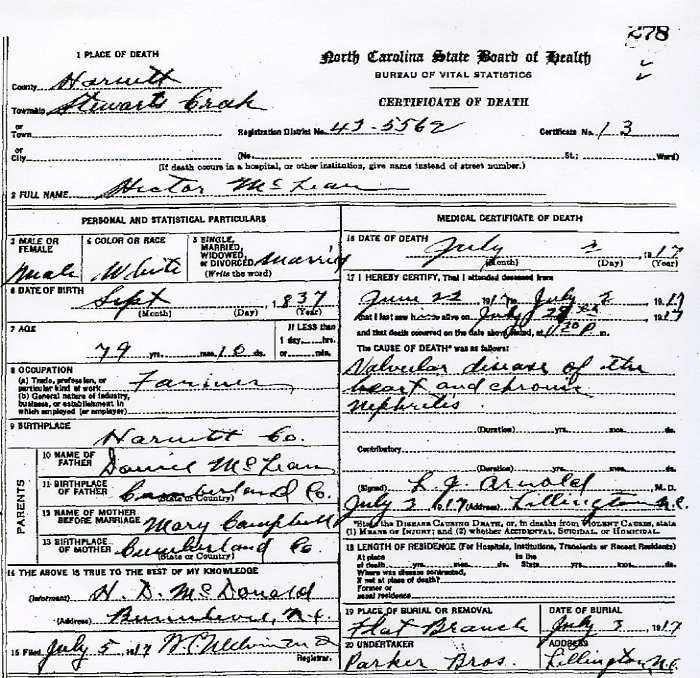 278
1 PLACE OF DEATH
North Carolina State Board of Health
BUREAU OF VITAL STATISTICS
County Harnett
CERTIFICATE OF DEATH
Township Stewarts Creek
or
Town
Registration District No. 43-5562 Certificate No. 13
or
City (No. St.; Ward)
(If death occurs in a hospital, or other institution, give name instead of street number.)
2 FULL NAME Hector McLean
PERSONAL AND STATISTICAL PARTICULARS
3 MALE OR FEMALE Male
4 COLOR OR RACE White
5 SINGLE, MARRIED, WIDOWED, or DIVORCED Married
(Write the word)
6 DATE OF BIRTH Sept 1837
(Month) (Day) (Year)
7 AGE
If LESS than
1 day, hrs.
or min.
79 yrs. 10 mos. ds.
8 OCCUPATION
(a) Trade, profession, or
particular kind of work Farmer
(b) General nature of industry,
business, or establishment in
which employed (or employer)
9 BIRTHPLACE
Harnett Co.
PARENTS
10 NAME OF FATHER Daniel McLean
11 BIRTHPLACE OF FATHER Cumberland Co.
(State or Country)
12 NAME OF MOTHER BEFORE MARRIAGE Mary Campbell
13 BIRTHPLACE OF MOTHER Cumberland Co.
(State or Country)
14 THE ABOVE IS TRUE TO THE BEST OF MY KNOWLEDGE
(Informant) H. D. McDonald
(Address) N.C.
15 Filed July 5 1917
Registrar.
MEDICAL CERTIFICATE OF DEATH
16 DATE OF DEATH July 2 1917
(Month) (Day) (Year)
17 I HEREBY CERTIFY, That I attended deceased from
June 22 1917 to July 2 1917
that I last saw h alive on July 2nd 1917
and that death occurred on the date above stated, at 11 30 P. m.
The CAUSE OF DEATH* was as follows:
Valvular disease of the
heart and chronic
nephritis.
(Duration) yrs. mos. ds.
Contributory
(Duration) yrs. mos. ds.
(Signed) L. J. Arnold M. D.
July 3 1917 (Address) Lillington N.C.
*State the DISEASE CAUSING DEATH, or, in deaths from VIOLENT CAUSES, state
(1) MEANS OF INJURY; and (2) whether ACCIDENTAL, SUICIDAL, or HOMICIDAL.
18 LENGTH OF RESIDENCE (For Hospitals, Institutions, Transients or Recent Residents)
At place In the
of death yrs. mos. ds. State yrs. mos. ds.
Where was disease contracted,
If not at place of death?
Former or
usual residence
19 PLACE OF BURIAL OR REMOVAL
Flat Branch
DATE OF BURIAL
July 3 1917
20 UNDERTAKER
Parker Bros.
ADDRESS
Lillington N.C.